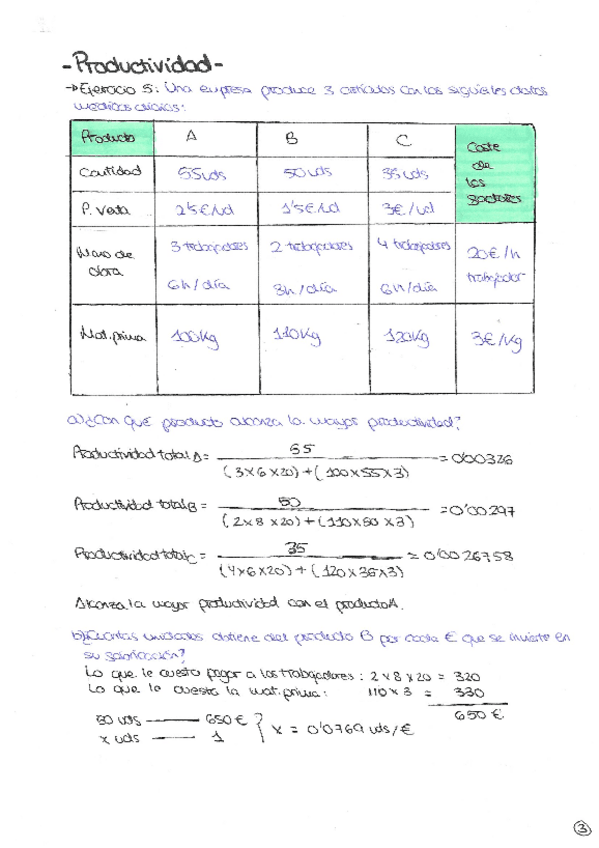 -Productividad-
→Ejercicio 5: Una empresa produce 3 artículos con los siguientes datos
medios diarios:
Producto A B C Coste de los factores
Cantidad 55uds 50 uds 35 uds
P. Venta 2'5€/ud 1'5€/ud 3€/ud
Mano de obra 3 trabajadores 6h/día 2 trabajadores 8h/día 4 trabajadores 6h/día 20€/h trabajador
Mat. prima 100kg 110kg 120kg 3€/kg
a)¿Con qué producto alcanza la mayor productividad?
Productividad total A = 55 / (3x6x20)+(100x55x3) = 0'00326
Productividad total B = 50 / (2x8x20)+(110x50x3) = 0'00297
Productividad total C = 35 / (4x6x20)+(120x35x3) = 0'0026758
Alcanza la mayor productividad con el producto A.
b)¿Cuántas unidades obtiene del producto B por cada € que se invierte en
su fabricación?
Lo que le cuesta pagar a los trabajadores: 2x8x20 = 320
Lo que le cuesta la mat. prima: 110x3 = 330
650 €
50 uds — 650€
x uds — 1
x = 0'0769 uds/€
3